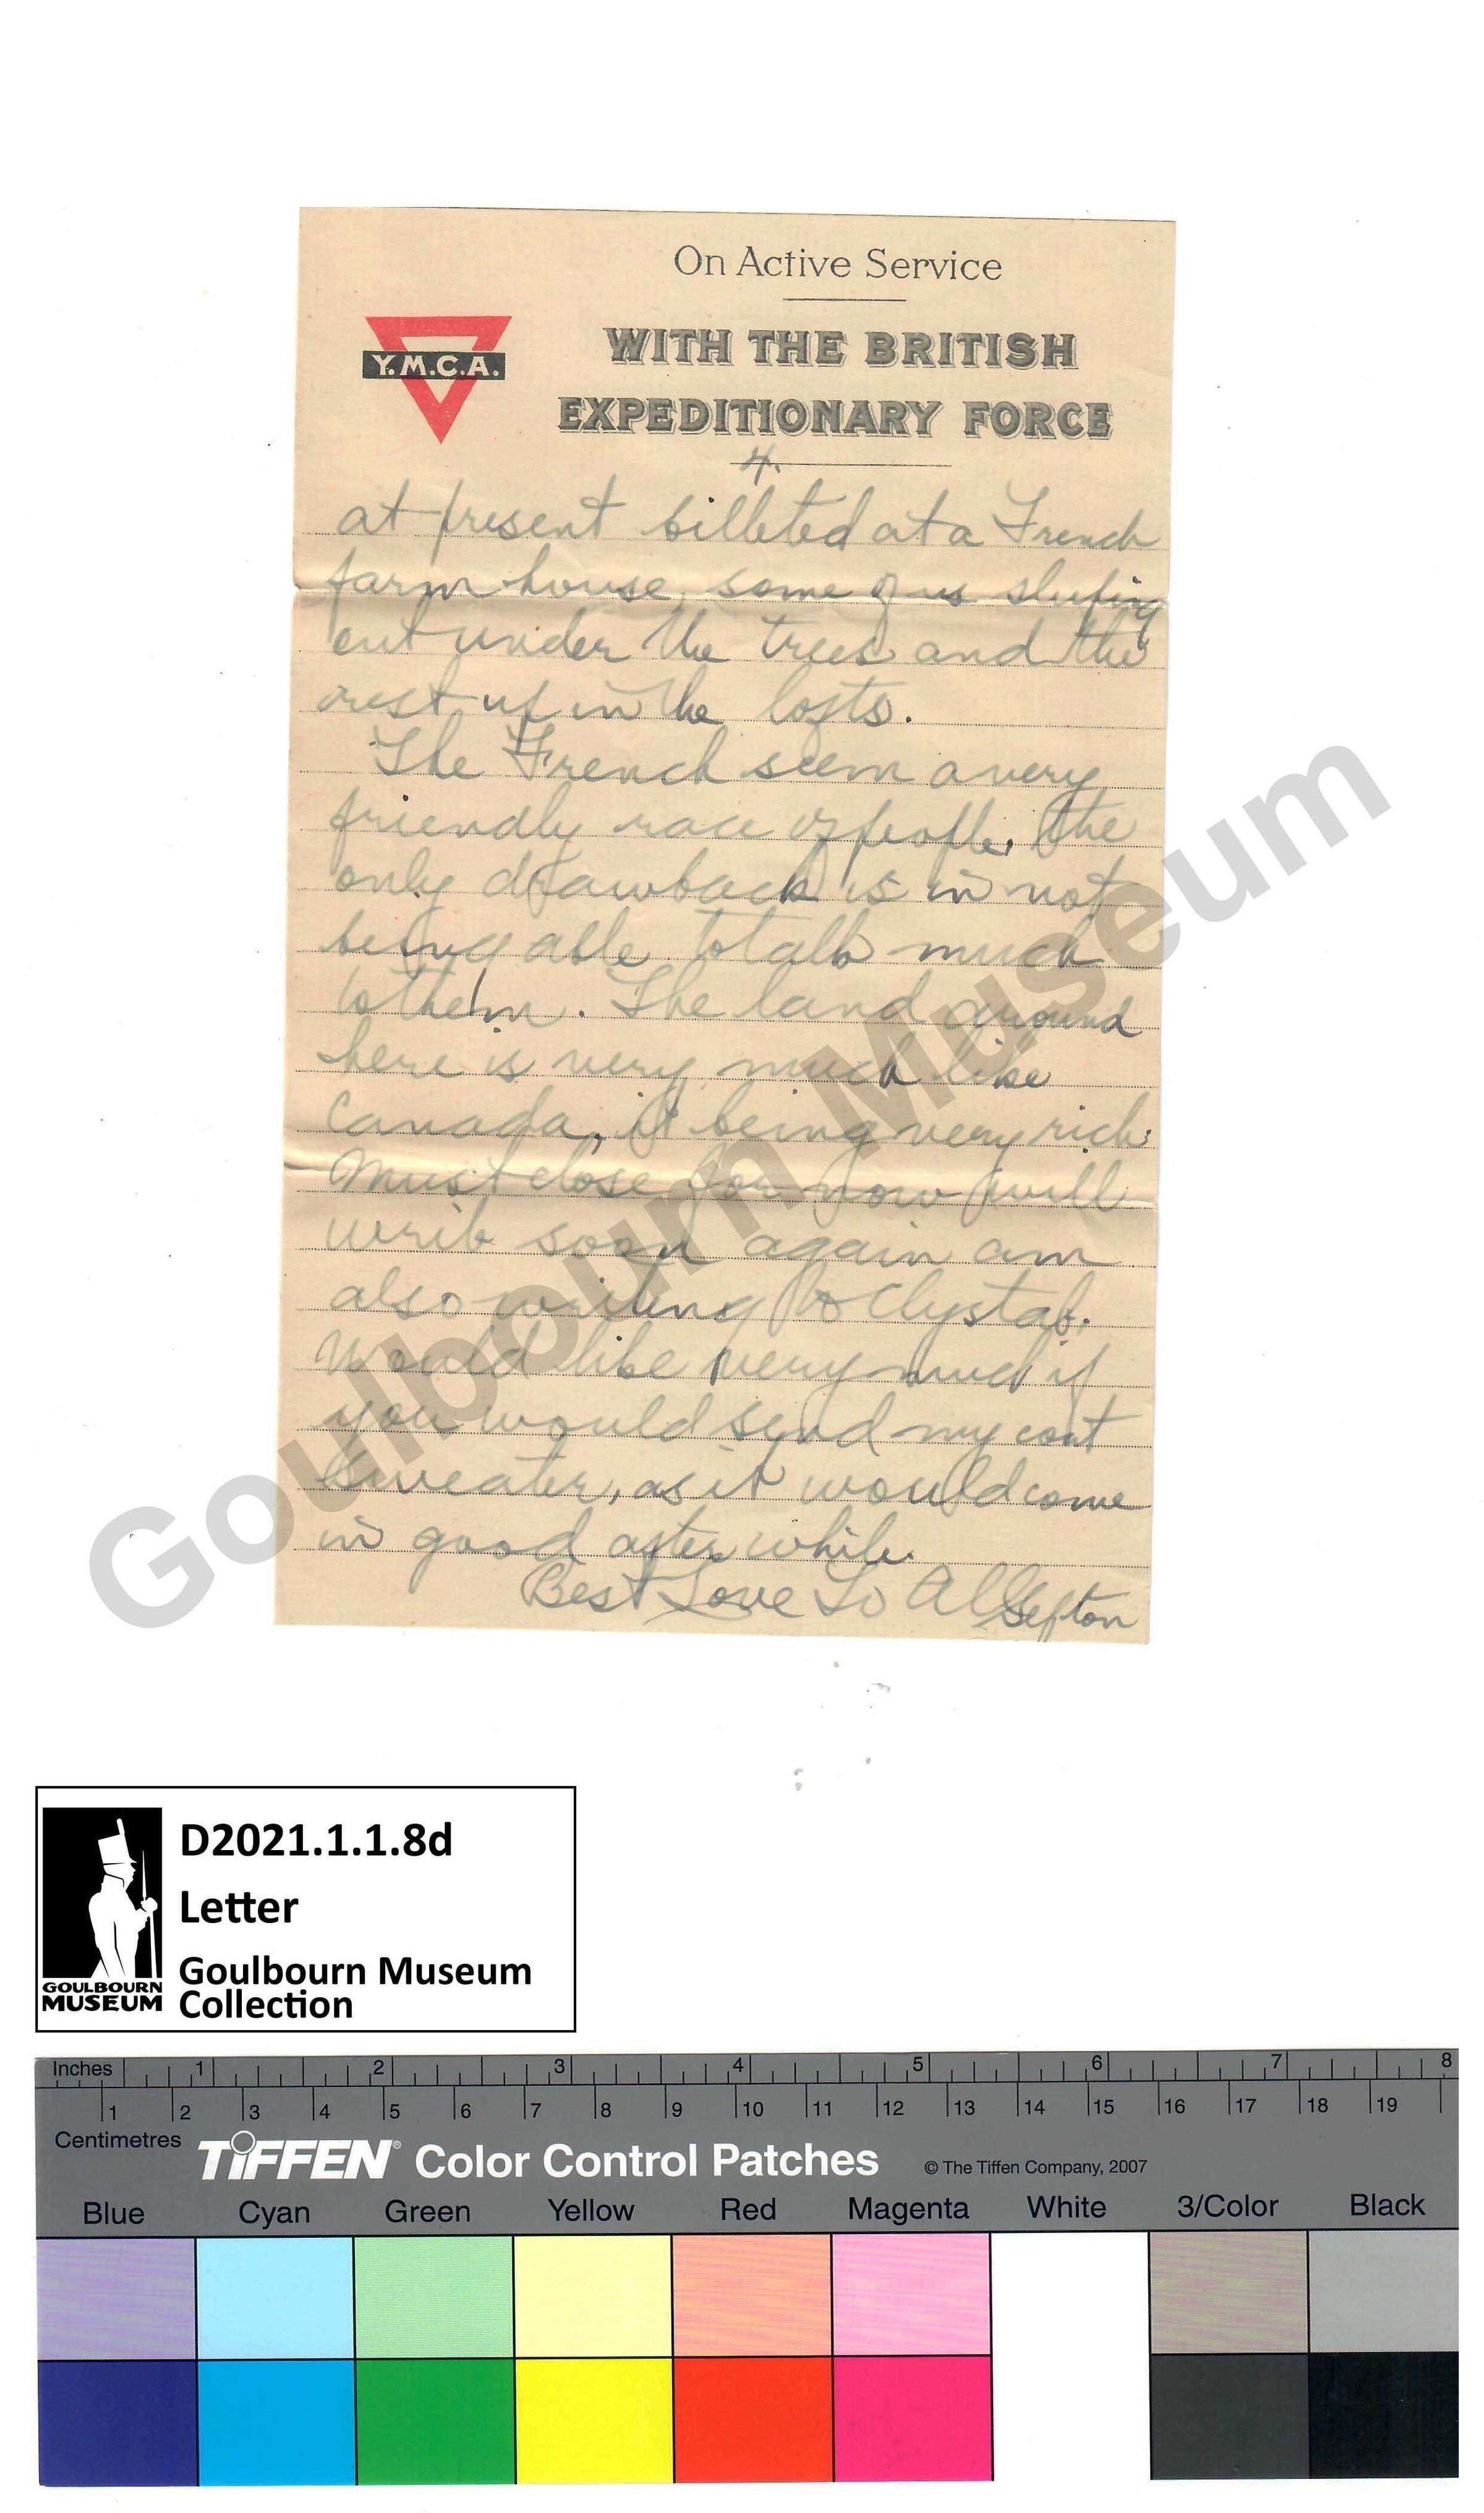 On Active Service
Y.M.C.A.
WITH THE BRITISH
EXPEDITIONARY FORCE
4.
at present billeted at a French
farm house, some of us sleeping
out under the trees and the
rest up in the lofts.
The French seem a very
friendly race of people, the
only drawback is in not
being able to talk much
to them. The land around
here is very much like
Canada, it being very rich.
Must close for now will
write soon again am
also writing to
Would like very much if
you would send my coat
sweater, as it would come
in good after while.
Best Love To All Sefton
Goulbourn Museum
D2021.1.1.8d
Letter
Goulbourn Museum
Collection
GOULBOURN
MUSEUM
Inches 1 2 3 4 5 6 7 8
1 2 3 4 5 6 7 8 9 10 11 12 13 14 15 16 17 18 19
Centimetres
TIFFEN® Color Control Patches © The Tiffen Company, 2007
Blue Cyan Green Yellow Red Magenta White 3/Color Black